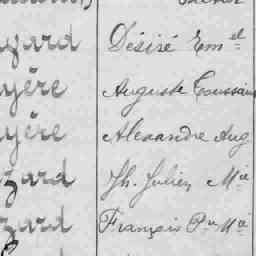 yard Désiré Em.el
yère Auguste Toussaint
yère Alexandre Aug
zard Jh. Julien M.ie
zard François P.re M.ie